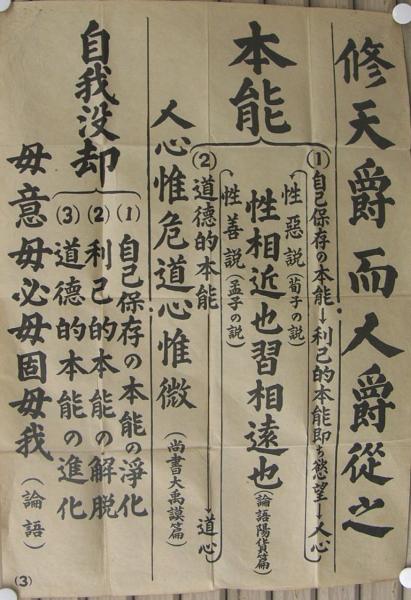 修天爵而人爵從之
本能
(1)自己保存の本能→利己的本能即ち慾望→人心
性惡説(荀子の説)
性相近也習相遠也(論語陽貨篇)
性善説(孟子の説)
(2)道德的本能→道心
人心惟危道心惟微(尚書大禹謨篇)
自我没却
(1)自己保存の本能の淨化
(2)利己的本能の解脱
(3)道德的本能の進化
毋意毋必毋固毋我(論語)
(3)